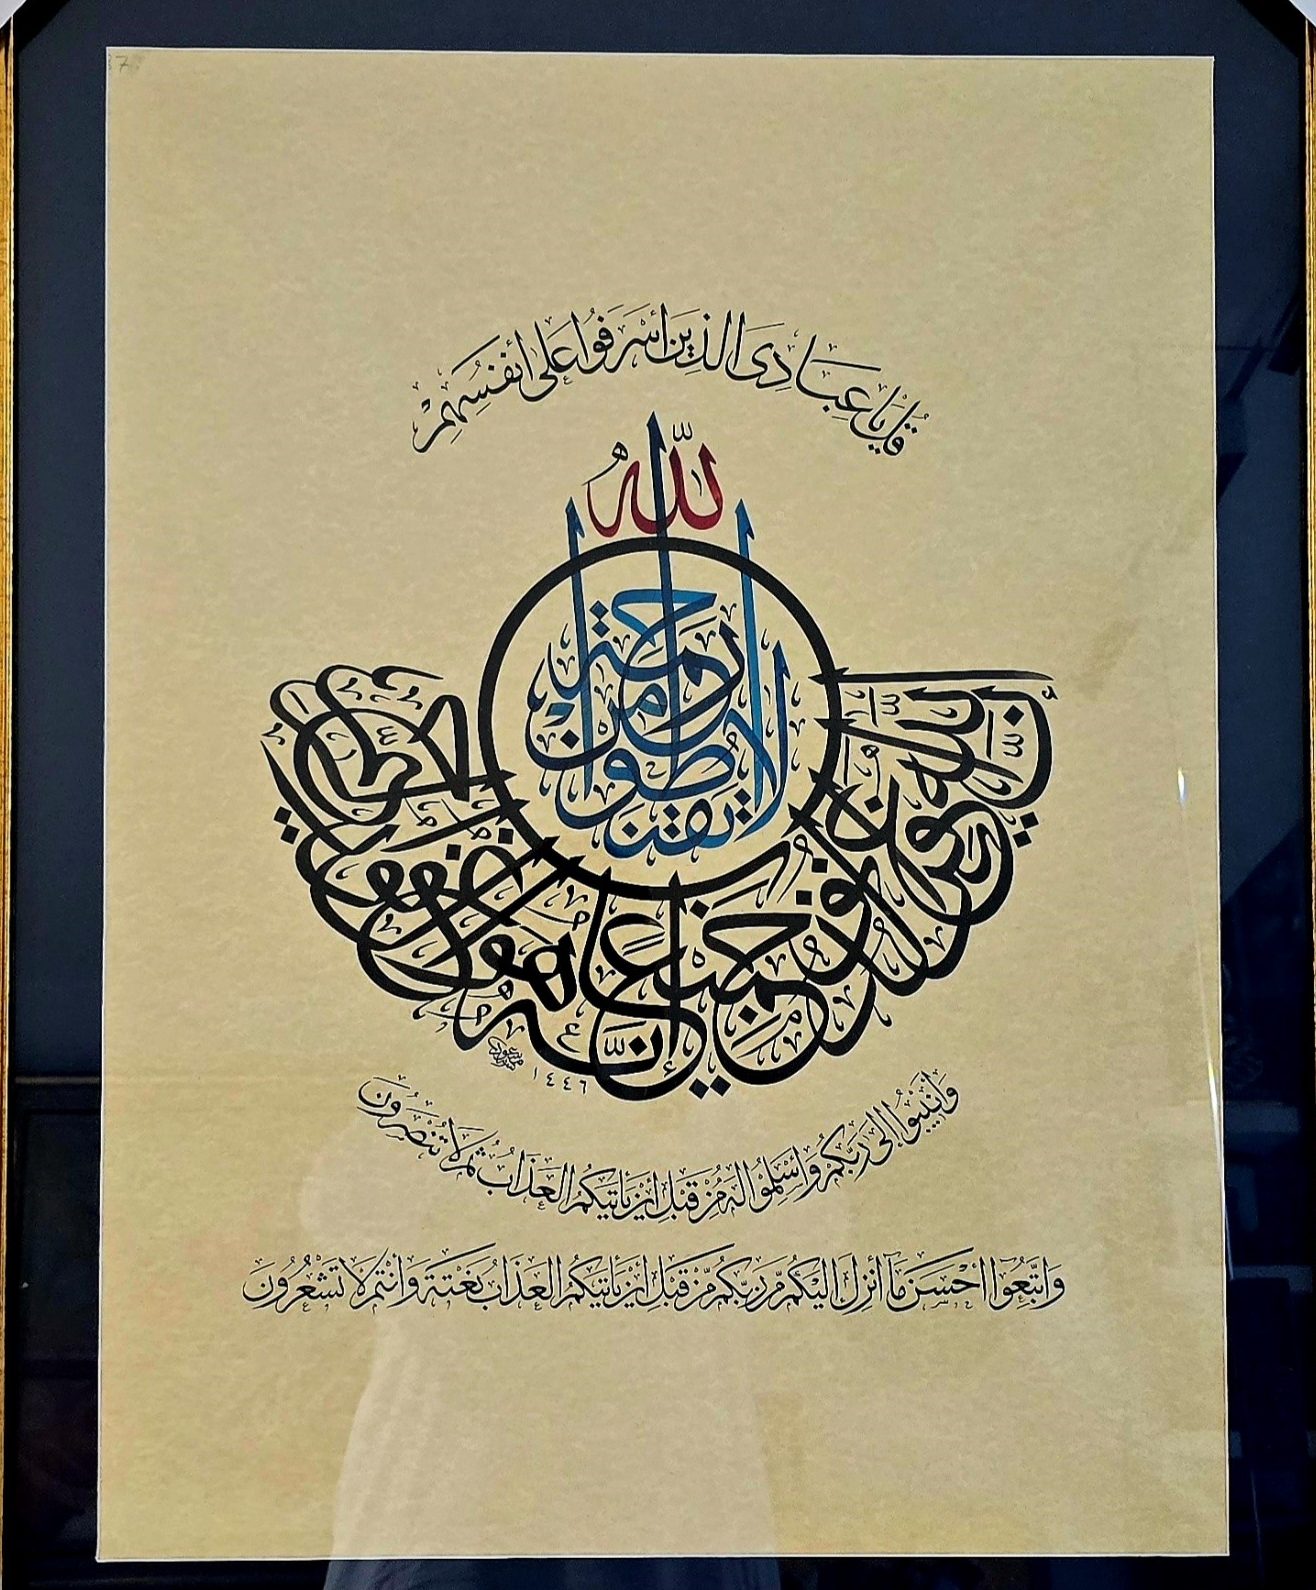 قُلْ يَا عِبَادِىَ الَّذِينَ أَسْرَفُوا عَلَى أَنفُسِهِمْ
لا تقنطوا من رحمة الله
إن الله يغفر الذنوب جميعا إنه هو الغفور الرحيم
١٤٤٦
وَأَنِيبُوا إِلَى رَبِّكُمْ وَأَسْلِمُوا لَهُ مِنْ قَبْلِ أَنْ يَأْتِيَكُمُ الْعَذَابُ ثُمَّ لَا تُنْصَرُونَ
وَاتَّبِعُوا أَحْسَنَ مَا أُنْزِلَ إِلَيْكُمْ مِنْ رَبِّكُمْ مِنْ قَبْلِ أَنْ يَأْتِيَكُمُ الْعَذَابُ بَغْتَةً وَأَنْتُمْ لَا تَشْعُرُونَ